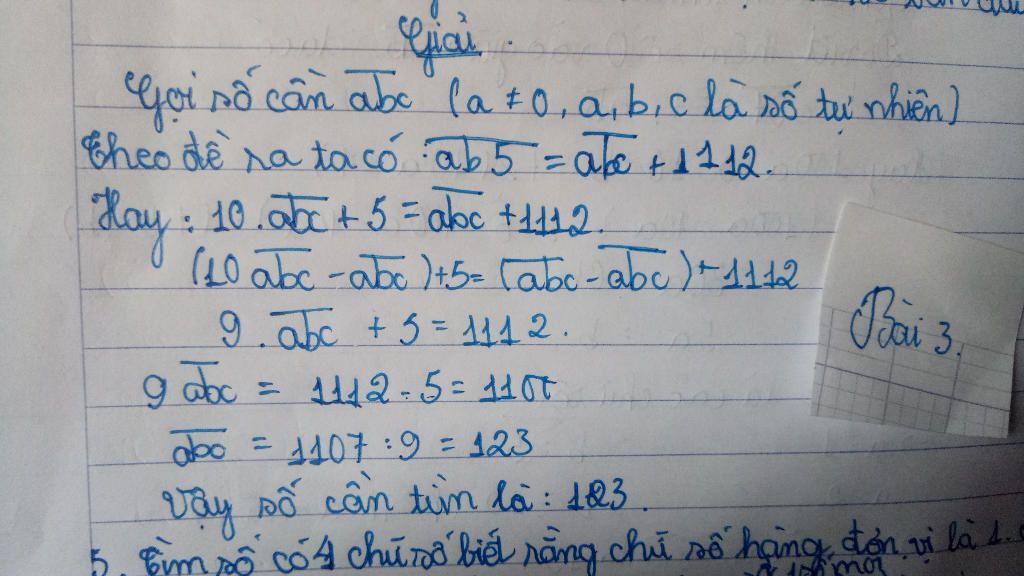 Giải.
Gọi số cần abc (a ≠ 0, a, b, c là số tự nhiên)
Theo đề ra ta có: ab5 = abc + 1112.
Hay: 10.abc + 5 = abc + 1112.
(10 abc - abc) + 5 = (abc - abc) + 1112
9. abc + 5 = 1112.
Bài 3.
9 abc = 1112 - 5 = 1107
abc = 1107 : 9 = 123
Vậy số cần tìm là: 123.
5. Tìm số có 4 chữ số biết rằng chữ số hàng đơn vị là 1.